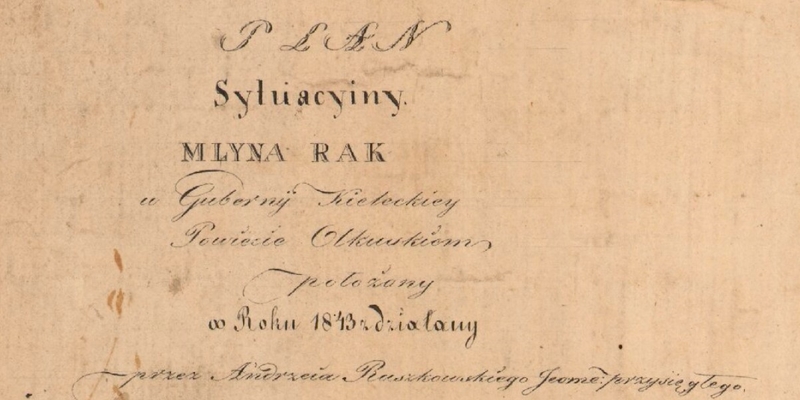 PLAN
Sytuacyiny.
MLYNA RAK
w Gubernÿ Kieleckiey
Powiecie Olkuskiem,
położany
w Roku 1843 zdziałany
przez Andrzeia Ruszkowskiego Jeome: przysięgłego.